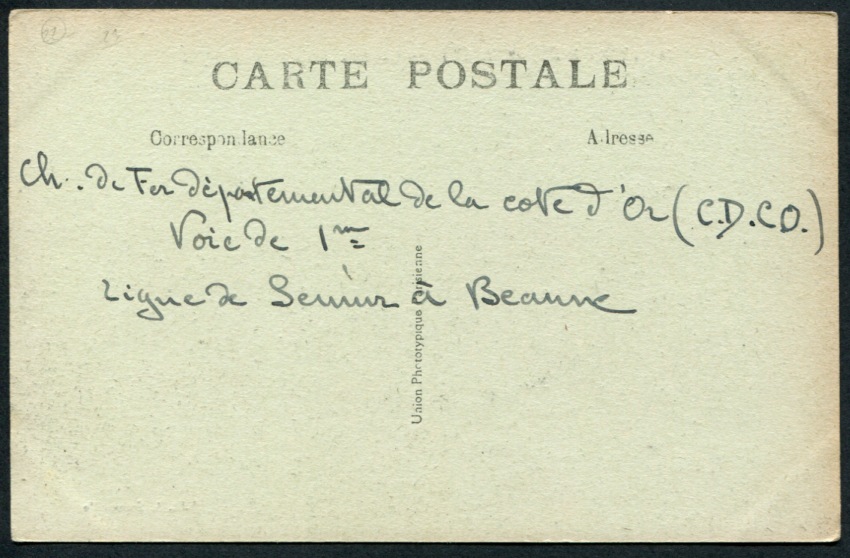 21 23
CARTE POSTALE
Correspondance
Adresse
Ch. de Fer départemental de la cote d'Or (C.D.CO.)
Voie de 1m
Ligne de Semur à Beaune
Union Phototypique Parisienne